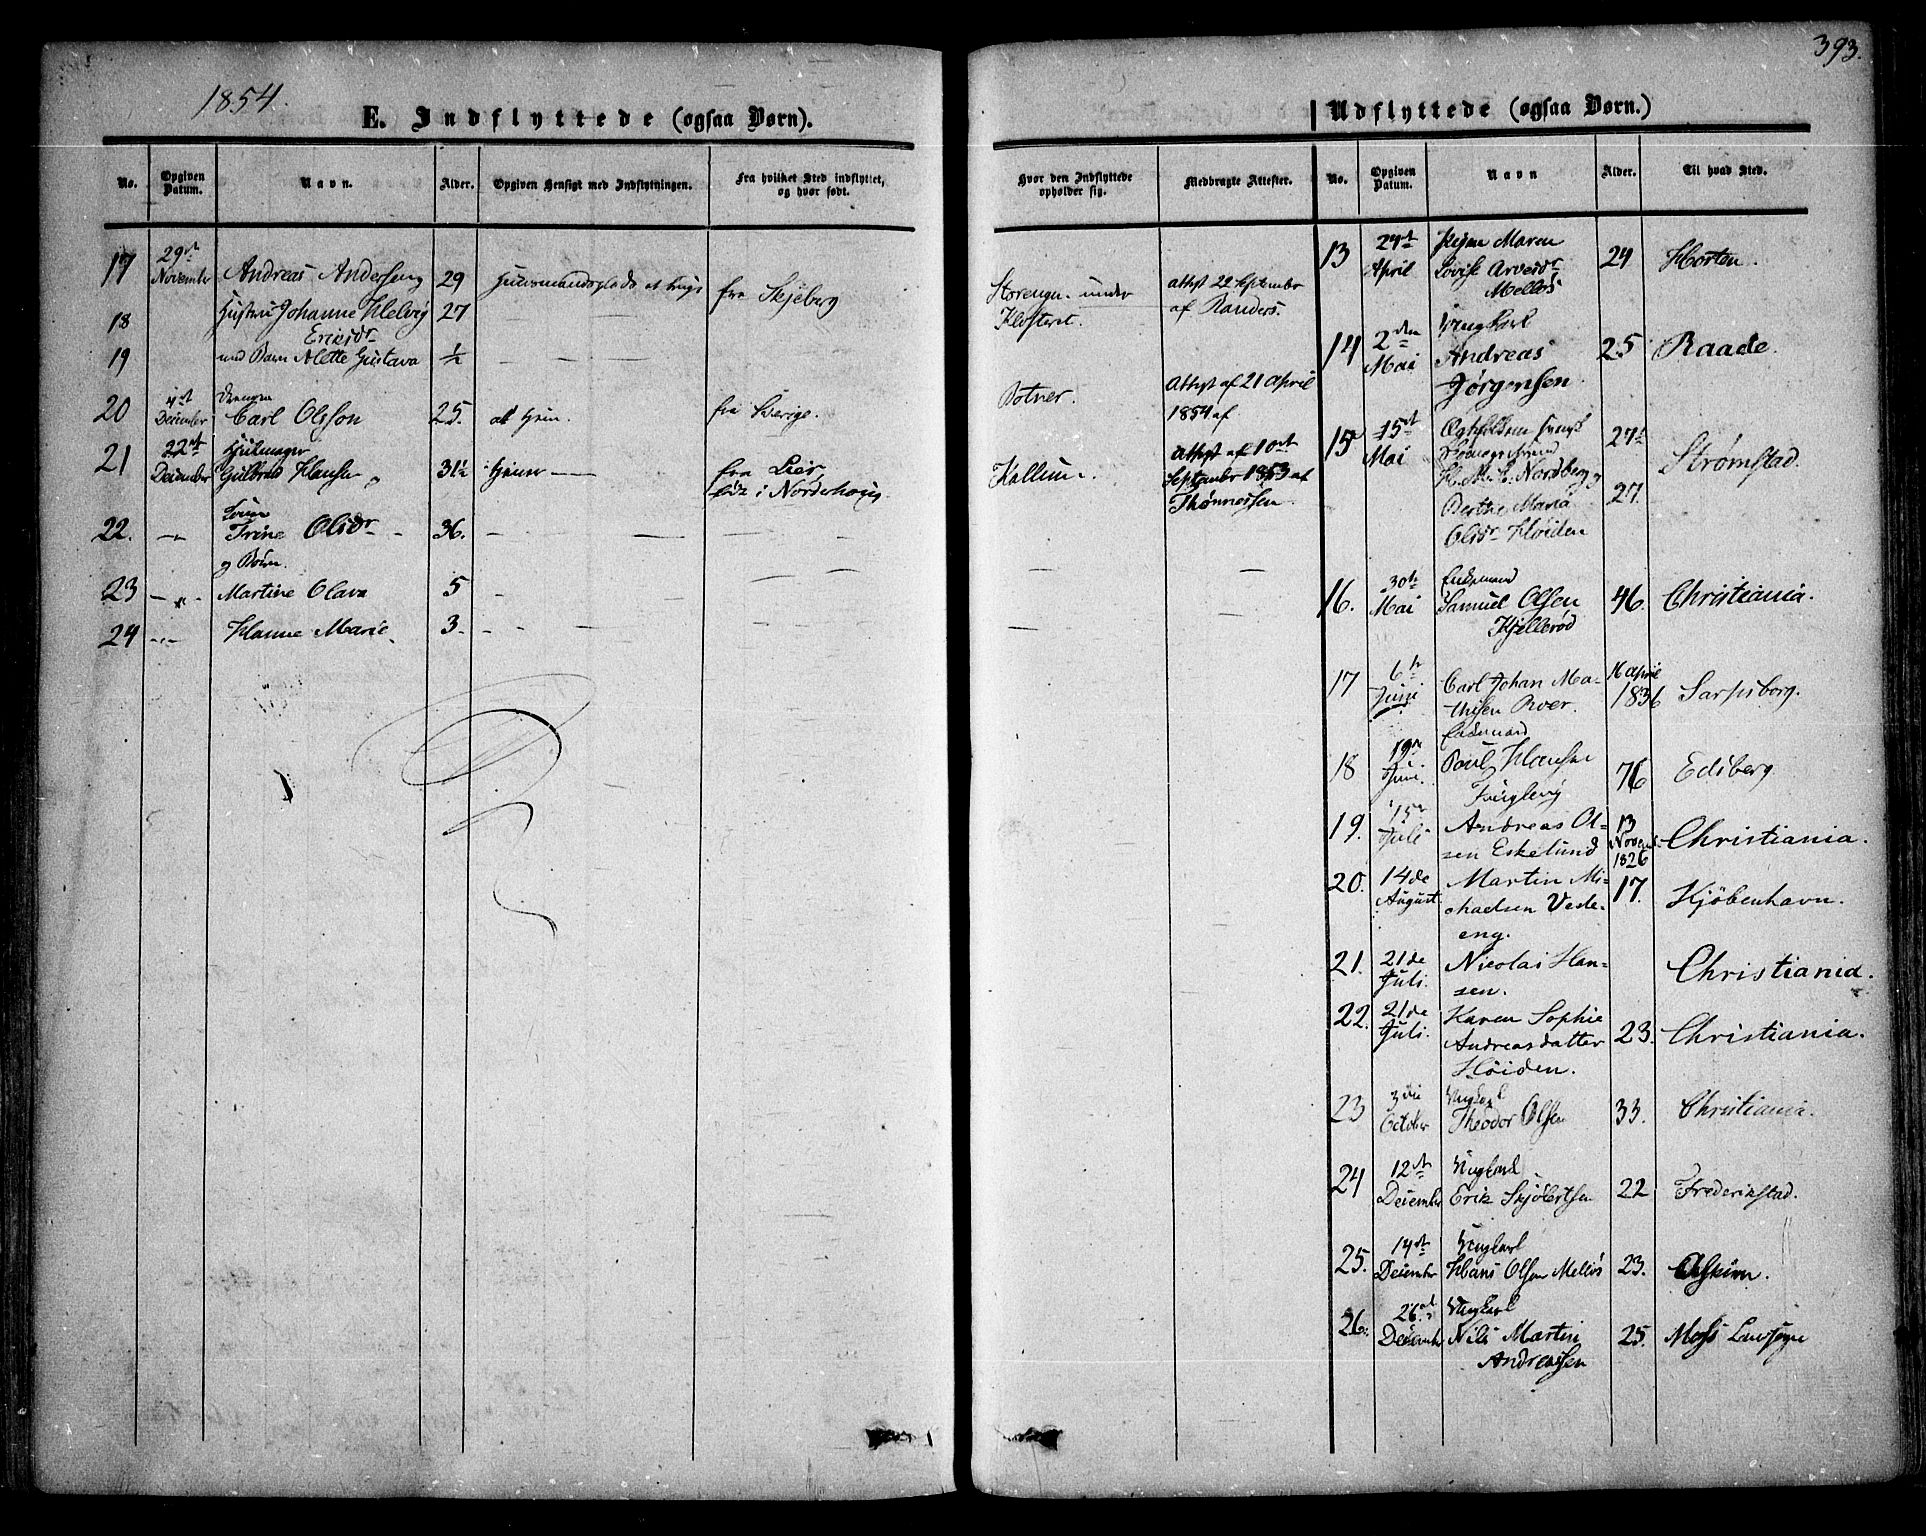 393.
1854.
E. Indflyttede (ogsaa Børn).
No.
Opgiven Datum.
Navn.
Alder.
Opgiven Hensigt med Indflytningen.
Fra hvilket Sted indflyttet, og hvor født.
Hvor den Indflyttede opholder sig.
Medbragte Attester.
17 29 November Andreas Andersen 29 Huusmandsplads at fra Skjeberg Storengn under Klosteret. attest 22 September af Randers.
18 Hustru Johanne Helvig Eriksdr 27
19 med Barn Alette Gustava ½ — — —
20 4 December Drengen Carl Olsson 25. at tjen. fra Sverige. Botner. Attest af 21 April 1854 af
21 22 December Hjulmager Gulbran Hansen 31½ tjener — fra Lier føz i Norderhoug Kallum Attest af 10 September 1853 af Thønnessen.
22. — Trine Olsdr 36. — — —
og Børn.
23 — Martine Olava 5 —
24 — Hanne Marie 3 — —
Udflyttede (ogsaa Børn.)
No.
Opgiven Datum.
Navn
Alder.
Til hvad Sted.
13 April Maren Lovise Arvesdr Melløs 24 Horten.
14 2den Mai Ungkarl Andreas Jörgensen 25 Raade.
15 15 Mai H. M. C. Nordberg og 27½ Strømstad.
Berthe Maria Olsdr Høiden 27.
16. 30 Mai Samuel Olsen Kjellerød 46. Christiania.
17 6 Juni Carl Johan Ma-
thisen Roer. 16 April 1836 Sarpsborg.
18 19 Juni Poul Hansen Fuglevig 76 Edsberg
19. 15 Juli Andreas Ol-
sen Eskelund 13 Novem. 1826 Christiania.
20. 14de August Martin Mi-
chaelsen Vede-
eng. 17. Kjöbenhavn.
21. 21de Juli. Nicolai Han-
sen. Christiania.
22. 21de Juli. Karen Sophie
Andreasdatter
Höiden. 23. Christiania.
23 3die October Ungkarl Theodor Olsen 33. Christiania.
24 12 December Ungkarl Erik Skjölertsen 22 Frederikstad.
25. 14 December Ungkarl Hans Olsen Melløs 23. Askim.
26. 26 December Ungkarl Nils Martin Andreassen 25. Moss Landsogn